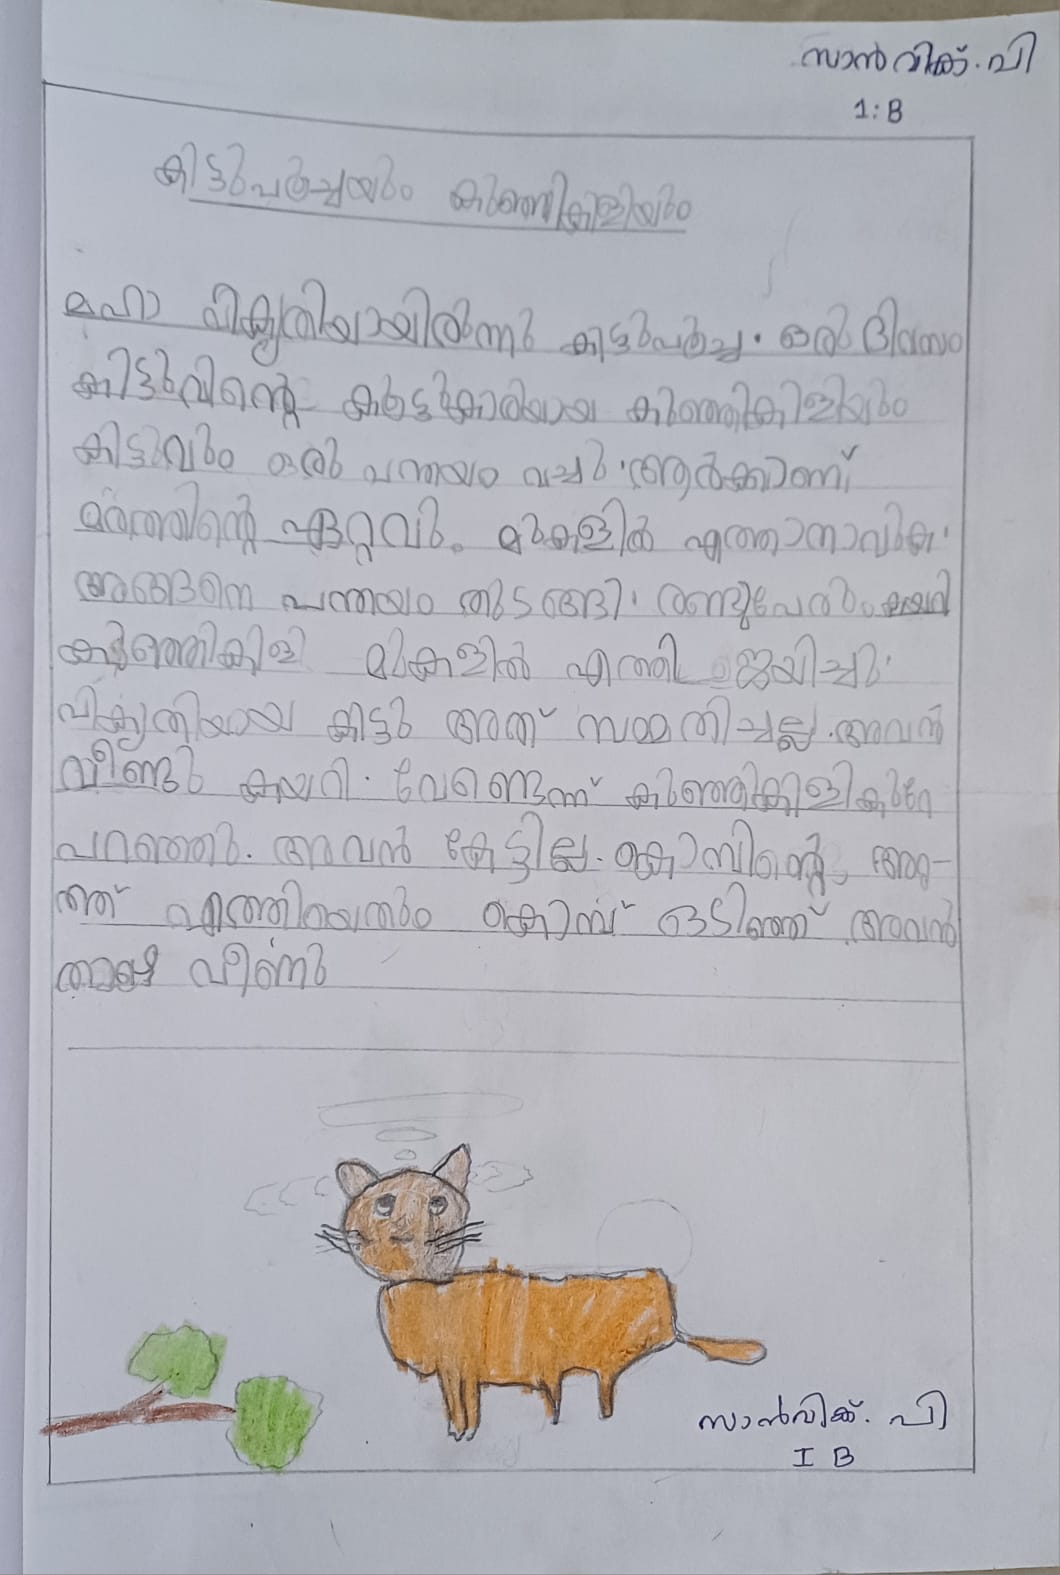 സാൻവിക്. പി
1:B
കിട്ടുപൂച്ചയും കുഞ്ഞികിളിയും
മഹാ വികൃതിയായിരുന്നു കിട്ടുപൂച്ച. ഒരു ദിവസം
കിട്ടുവിന്റെ കൂട്ടുകാരിയായ കുഞ്ഞികിളിയും
കിട്ടുവും ഒരു പന്തയം വച്ചു. ആർക്കാണ്
മരത്തിന്റെ ഏറ്റവും മുകളിൽ എത്താനാവുക.
അങ്ങനെ പന്തയം തുടങ്ങി. രണ്ടുപേരും കയറി
കുഞ്ഞികിളി മുകളിൽ എത്തി ജയിച്ചു.
വികൃതിയായ കിട്ടു അത് സമ്മതിച്ചില്ല. അവൻ
വീണ്ടും കയറി. വേണ്ടെന്ന് കുഞ്ഞികിളി
പറഞ്ഞു. അവൻ കേട്ടില്ല. കൊമ്പിന്റെ അറ്റ-
ത്ത് എത്തിയതും കൊമ്പ് ഒടിഞ്ഞ് അവൻ
താഴെ വീണു
സാൻവിക്. പി
I B